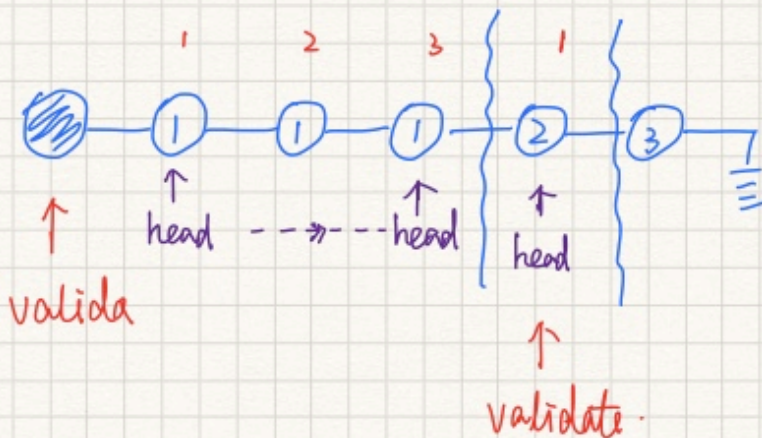 1 2 3 1
1 1 1 2 3
head head
head
valida
validate.